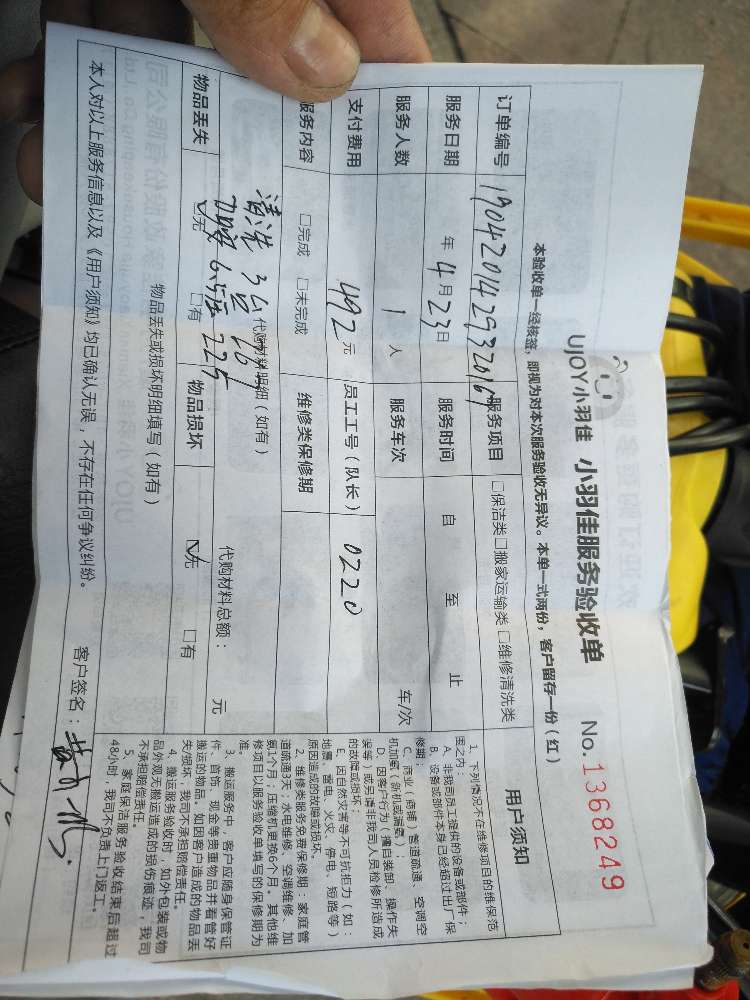 UJOY小羽佳 小羽佳服务验收单 No.1368249
本验收单一经核签，即视为对本次服务验收无异议。本单一式两份，客户留存一份（红）
订单编号 1904201429320161 服务项目 □保洁类□搬家运输类□维修清洗类
服务日期 年4月23日 服务时间 自 至 止
服务人数 1人 服务车次 车/次
支付费用 492元 员工工号（队长） 0220
服务内容 □完成 □未完成 维修类保修期
代购材料明细（如有）
清洗3台267
加氟6.5压225
代购材料总额： 元
物品丢失 ☑无 □有 物品损坏 ☑无 □有
物品丢失或损坏明细填写（如有）
本人对以上服务信息以及《用户须知》均已确认无误，不存在任何争议纠纷。 客户签名：
用户须知
1、下列情况不在维修项目的维保范
围之内：
A、非我司员工提供的设备或部件；
B、设备或部件本身已经超过出厂保
修期；
C、商业（商铺）管道疏通、空调空
机加氟（新机或漏氟）；
D、因客户行为（擅自装卸、操作失
误等）或另请非我司人员检修所造成
的故障或损坏；
E、因自然灾害等不可抗拒力（如：
地震、雷电、火灾、停电、短路等）
原因造成的故障或损坏。
2、维修类服务免费保修期：家庭管
道疏通3天；水电维修、空调维修、加
氟1个月；压缩机更换6个月。其他维
修项目以服务验收单填写的保修期为
准。
3、搬运服务中，客户应随身保管证
件、首饰、现金等贵重物品并看管好
搬运的物品。如因客户造成的物品丢
失/损坏，我司不承担赔偿责任。
4、搬运服务验收时，如外包装或物
品外观无搬运造成的损伤痕迹，我司
不承担赔偿责任。
5、家庭保洁服务验收结束后超过
48小时，我司不负责上门返工。